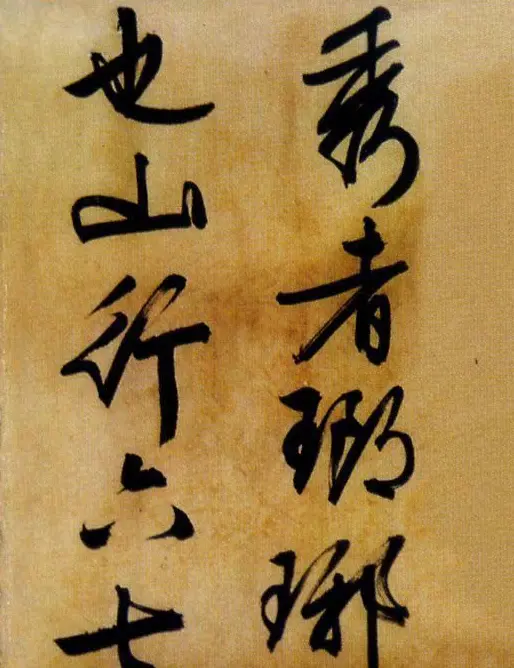 秀者瑯琊
也山行六七